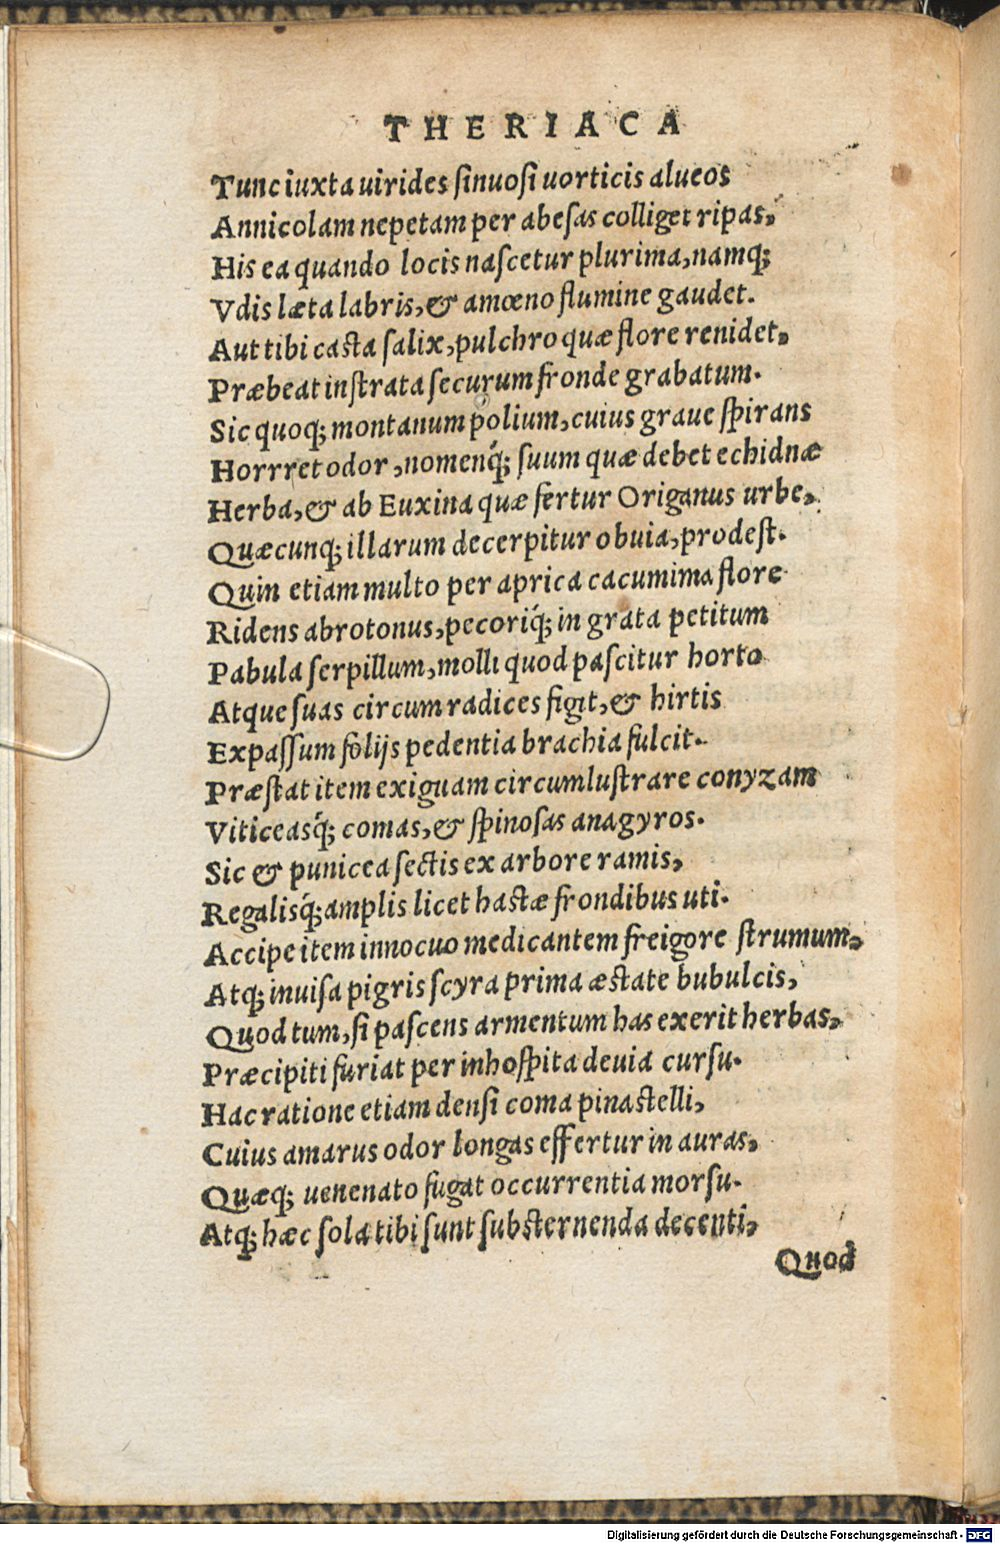 THERIACA
Tunc iuxta uirides sinuosi uorticis alueos
Annicolam nepetam per abesas colliget ripas,
His ea quando locis nascetur plurima, namq;
Vdis læta labris, & amœno flumine gaudet.
Aut tibi casta salix, pulchro quæ flore renidet,
Præbeat instrata securum fronde grabatum.
Sic quoq; montanum polium, cuius graue spirans
Horrret odor, nomenq́; suum quæ debet echidnæ
Herba, & ab Euxina quæ fertur Origanus urbe,
Quæcunq; illarum decerpitur obuia, prodest.
Quin etiam multo per aprica cacumima flore
Ridens abrotonus, pecoriq́; in grata petitum
Pabula serpillum, molli quod pascitur horto
Atque suas circum radices figit, & hirtis
Expassum folijs pedentia brachia fulcit.
Præstat item exiguam circumlustrare conyzam
Viticeasq́; comas, & spinosas anagyros.
Sic & punicea sectis ex arbore ramis,
Regalisq́; amplis licet hastæ frondibus uti.
Accipe item innocuo medicantem freigore strumum,
Atq; inuisa pigris scyra prima æstate bubulcis,
Quod tum, si pascens armentum has exerit herbas,
Præcipiti furiat per inhospita deuia cursu.
Hac ratione etiam densi coma pinastelli,
Cuius amarus odor longas effertur in auras,
Quæq; uenenato fugat occurrentia morsu.
Atq; hæc sola tibi sunt substernenda decenti,
Quod
Digitalisierung gefördert durch die Deutsche Forschungsgemeinschaft - DFG